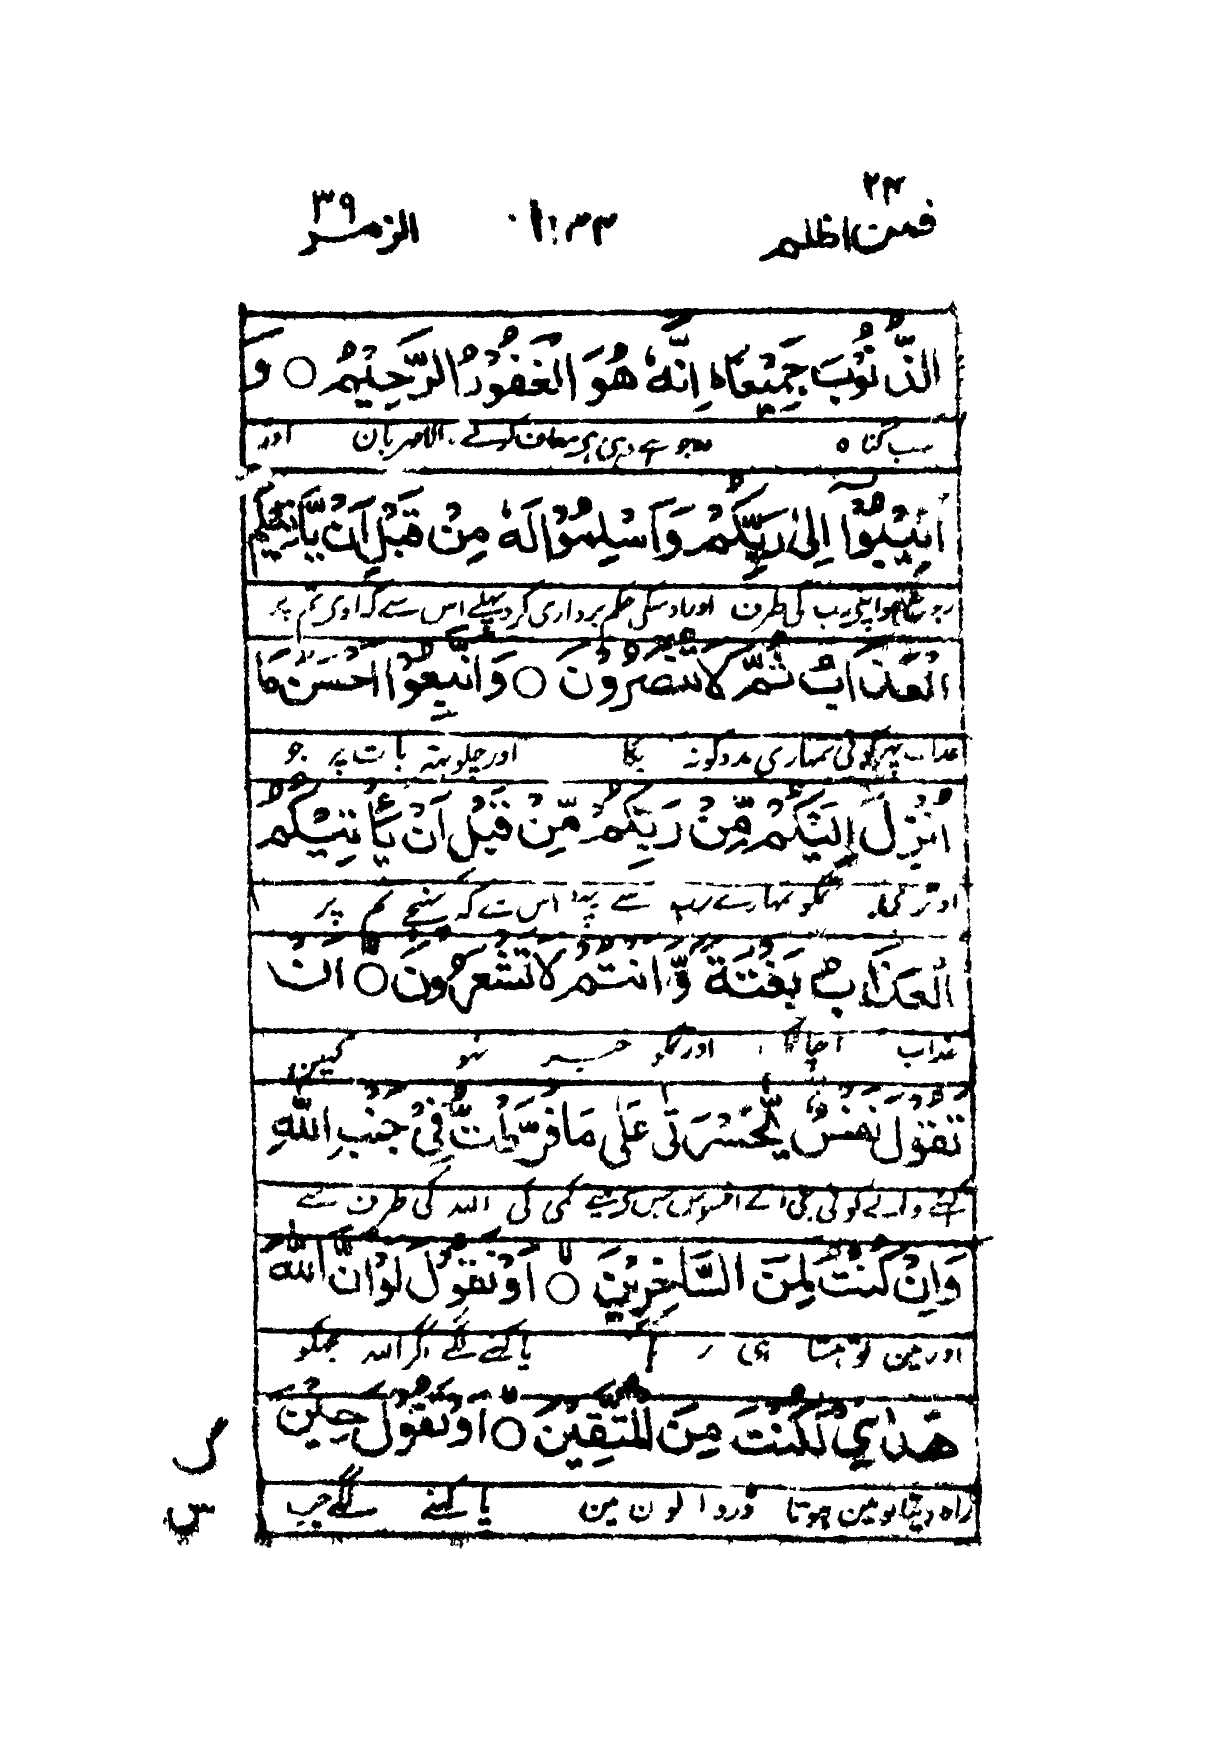 فمن اظلم ۲۴ ۱۰۴۴ الزمر ۳۹
الذُّنُوْبَ جَمِيْعًا اِنَّهٗ هُوَ الْغَفُوْرُ الرَّحِيْمُ ○ وَ
سب گناہ وہ جو ہے وہی ہی معاف کرنے والا مہربان اور
اَنِيْبُوْۤا اِلٰى رَبِّكُمْ وَاَسْلِمُوْا لَهٗ مِنْ قَبْلِ اَنْ يَّاْتِيَكُمُ
رب کی طرف حکم برداری کرو پہلے اس سے کہ آوی تم پر
الْعَذَابُ ثُمَّ لَا تُنْصَرُوْنَ ○ وَاتَّبِعُوْۤا اَحْسَنَ مَا
عذاب پہر کوئی تمہاری مدد کو نہ اور چلو بہتر بات پر جو
اُنْزِلَ اِلَيْكُمْ مِّنْ رَبِّكُمْ مِّنْ قَبْلِ اَنْ يَّاْتِيَكُمُ
تمکو تمہارے رب سے اس سے کہ پہنچے تم پر
الْعَذَابُ بَغْتَةً وَّاَنْتُمْ لَا تَشْعُرُوْنَ ○ اَنْ
عذاب اور تمکو خبر نہو کہیں
تَقُوْلَ نَفْسٌ يّٰحَسْرَتٰى عَلٰى مَا فَرَّطْتُّ فِيْ جَنْۢبِ اللّٰهِ
کہنے کوئی جی اے افسوس کمی کی اللہ کی طرف سے
وَاِنْ كُنْتُ لَمِنَ السَّاخِرِيْنَ ○ اَوْ تَقُوْلَ لَوْ اَنَّ اللّٰهَ
اور مین تو ہنستا ہی رہا یا کہنے لگے اگر اللہ مجھکو
هَدٰىنِيْ لَكُنْتُ مِنَ الْمُتَّقِيْنَ ○ اَوْ تَقُوْلَ حِيْنَ
راہ دیتا تو مین ہوتا ڈروالون مین یا کہنے لگے جب